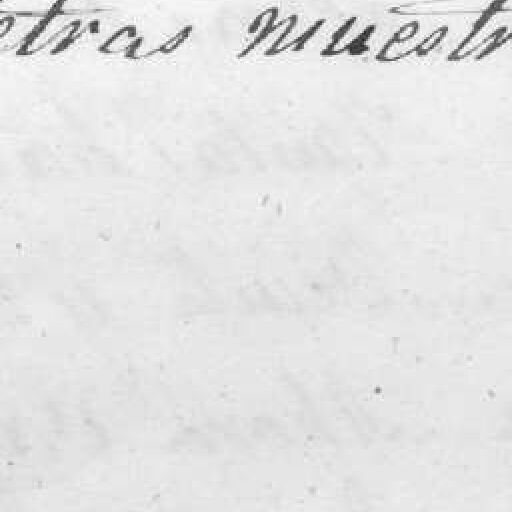 etras muestr